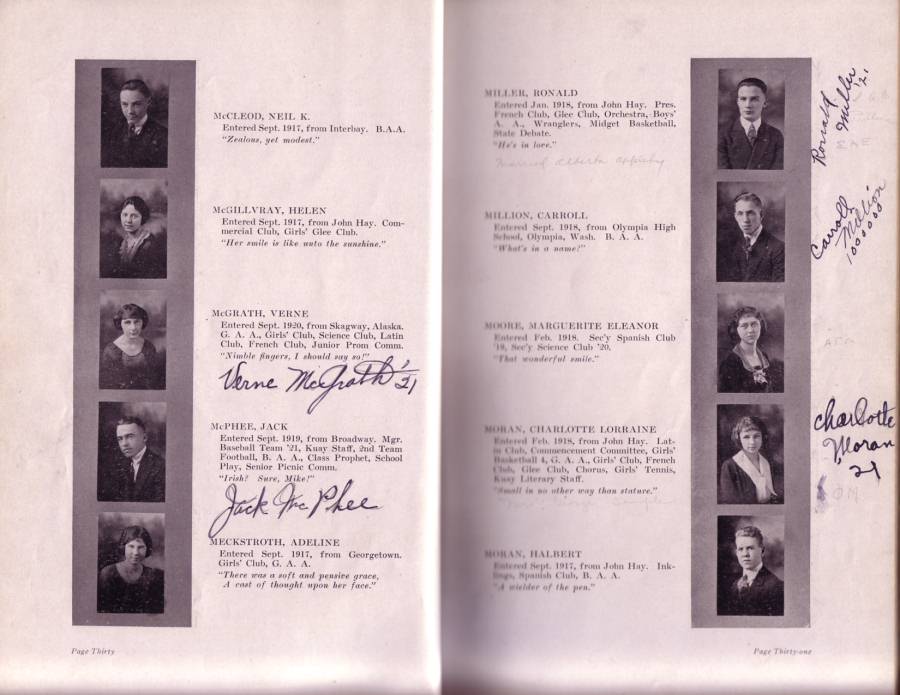 McCLEOD, NEIL K.
Entered Sept. 1917, from Interbay. B.A.A.
"Zealous, yet modest."
McGILLVRAY, HELEN
Entered Sept. 1917, from John Hay. Com-
mercial Club, Girls' Glee Club.
"Her smile is like unto the sunshine."
McGRATH, VERNE
Entered Sept. 1920, from Skagway, Alaska.
G. A. A., Girls' Club, Science Club, Latin
Club, French Club, Junior Prom Comm.
"Nimble fingers, I should say so!"
Verne McGrath '21
McPHEE, JACK
Entered Sept. 1919, from Broadway. Mgr.
Baseball Team '21, Kuay Staff, 2nd Team
Football, B. A. A., Class Prophet, School
Play, Senior Picnic Comm.
"Irish? Sure, Mike!"
Jack McPhee
MECKSTROTH, ADELINE
Entered Sept. 1917, from Georgetown.
Girls' Club, G. A. A.
"There was a soft and pensive grace,
A cast of thought upon her face."
Page Thirty
MILLER, RONALD
Entered Jan. 1918, from John Hay. Pres.
French Club, Glee Club, Orchestra, Boys'
A. A., Wranglers, Midget Basketball,
State Debate.
"He's in love."
Married Alberta
Ronald
Miller '21
MILLION, CARROLL
Entered Sept. 1918, from Olympia High
School, Olympia, Wash. B. A. A.
"What's in a name?"
Carroll
Million
MOORE, MARGUERITE ELEANOR
Entered Feb. 1918. Sec'y Spanish Club
'19, Sec'y Science Club '20.
"That wonderful smile."
MORAN, CHARLOTTE LORRAINE
Entered Feb. 1918, from John Hay. Lat-
in Club, Commencement Committee, Girls'
Basketball 4, G. A. A., Girls' Club, French
Club, Glee Club, Chorus, Girls' Tennis,
Kuay Literary Staff.
"Small in no other way than stature."
Charlotte
Moran
21
MORAN, HALBERT
Entered Sept. 1917, from John Hay. Ink-
lings, Spanish Club, B. A. A.
"A wielder of the pen."
Page Thirty-one